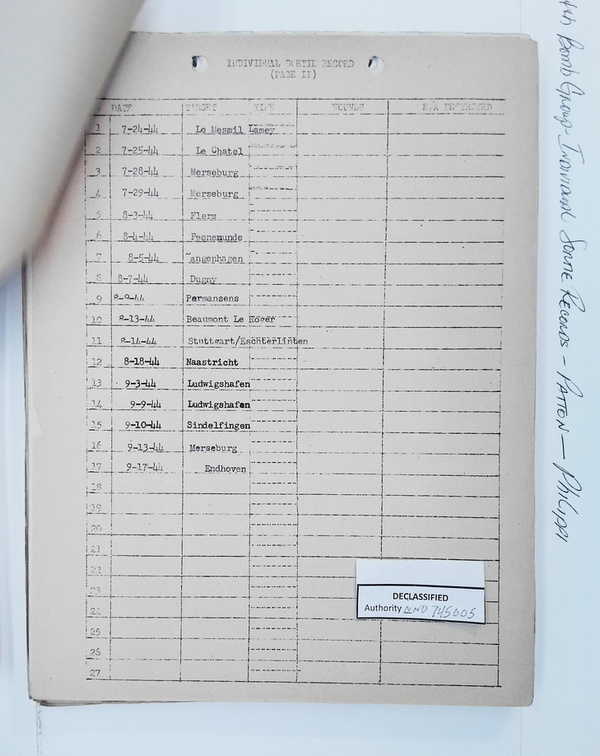 INDIVIDUAL SORTIE RECORD
(PAGE II)
DATE TARGET TIME WOUNDS E/A DESTROYED
1 7-24-44 Le Mesmil Lamey
2 7-25-44 Le Chatel
3 7-28-44 Merseburg
4 7-29-44 Merseburg
5 8-3-44 Flers
6 8-4-44 Peenemunde
7 8-5-44 angenhagen
8 8-7-44 Dugny
9 8-9-44 Permansens
10 8-13-44 Beaumont Le Roger
11 8-14-44 Stuttgart/Eschterlinten
12 8-18-44 Naastricht
13 9-3-44 Ludwigshafen
14 9-9-44 Ludwigshafen
15 9-10-44 Sindelfingen
16 9-13-44 Merseburg
17 9-17-44 Endhoven
18
19
20
21
22
23
24
25
26
27
DECLASSIFIED
Authority NND 745005
4th Bomb Group - Individual Sortie Records - Patton - Philippi